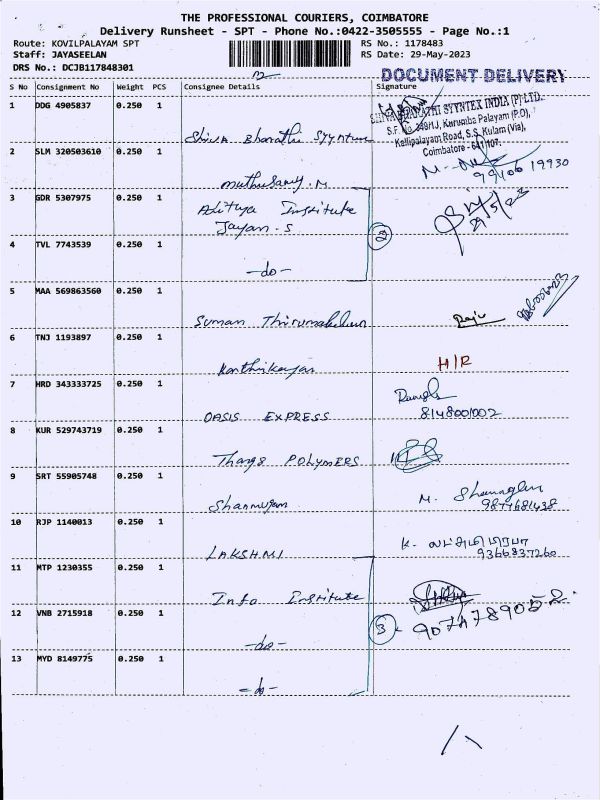 THE PROFESSIONAL COURIERS, COIMBATORE
Delivery Runsheet - SPT - Phone No.:0422-3505555 - Page No.:1
Route: KOVILPALAYAM SPT
RS No.: 1178483
Staff: JAYASEELAN
RS Date: 29-May-2023
DRS No.: DCJB117848301
DOCUMENT DELIVERY
S No Consignment No Weight PCS Consignee Details Signature
1 DDG 4905837 0.250 1 Shiva Bharathi
SHIVA BHARATHI SYNTEX INDIA (P) LTD.
S.F. No. 349/1, Kurumba Palayam (P.O),
Kallipalayam Road, S.S. Kulam (Via),
Coimbatore - 641 107.
2 SLM 320503610 0.250 1 Muthusamy. M
3 GDR 5307975 0.250 1 Aditya Institute
Jayan. S
2
4 TVL 7743539 0.250 1 -do-
5 MAA 569863560 0.250 1 Suman Raju
6 TNJ 1193897 0.250 1 Karthikeyan H/R
7 HRD 343333725 0.250 1 OASIS EXPRESS
8148001002
8 KUR 529743719 0.250 1 Thangs POLYMERS
9 SRT 55905748 0.250 1 Shanmugam M.
10 RJP 1140013 0.250 1 LAKSHMI K.
9366837260
11 MTP 1230355 0.250 1 Info Institute
12 VNB 2715918 0.250 1 -do-
3
9074789052
13 MYD 8149775 0.250 1 -do-